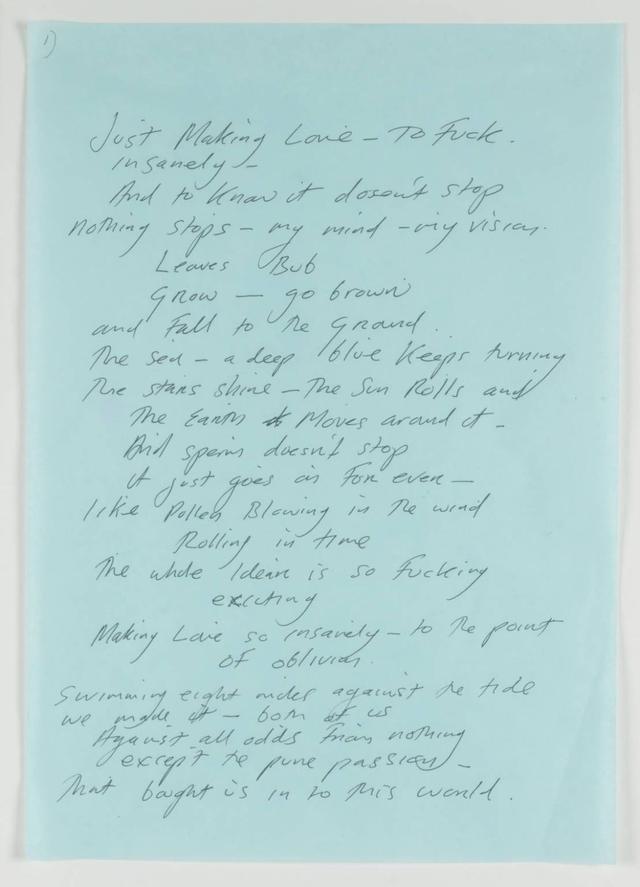 1)
Just Making Love – To Fuck.
insanely –
And to Know it doesn't stop
nothing stops – my mind – my vision.
Leaves Bub
Grow — go brown
and Fall to the Ground.
The sea – a deep blue Keeps turning
The stars shine – The Sun Rolls and
The Earth Moves around it –
And sperm doesn't stop
it just goes on For ever —
like Pollen Blowing in the wind
Rolling in time
The whole Idear is so Fucking
exciting
Making Love so insanely – to the point
of oblivion.
Swimming eight miles against the tide
we made it – both of us
Against all odds From nothing
except the pure passion –
That bought us in to this world.